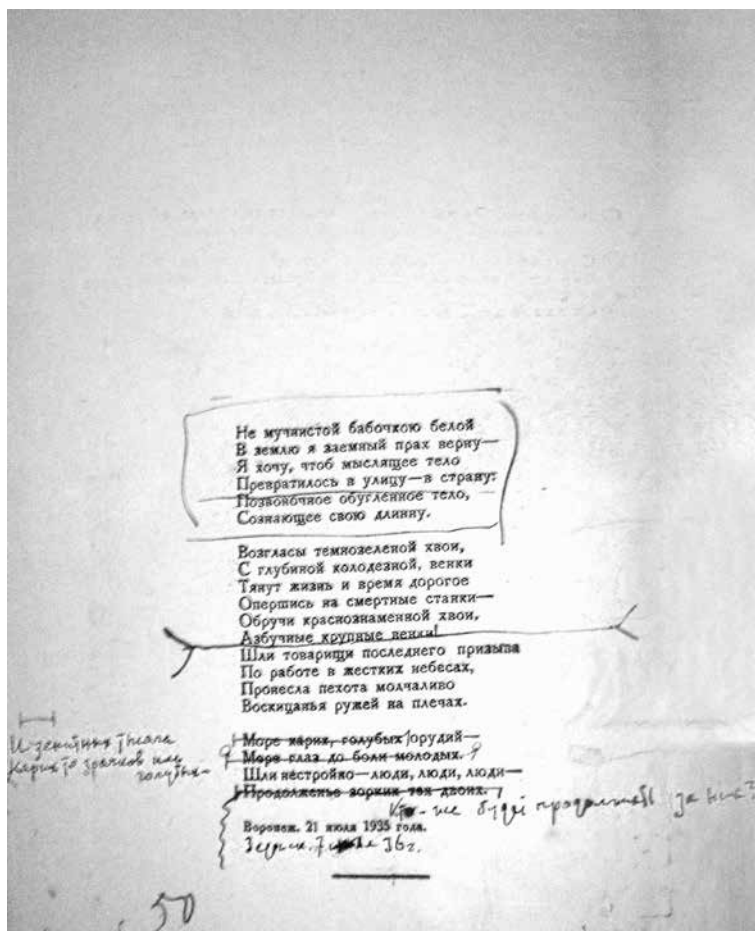 Не мучнистой бабочкою белой
В землю я заемный прах верну—
Я хочу, чтоб мыслящее тело
Превратилось в улицу—в страну:
Позвоночное обугленное тело,
Сознающее свою длинну.
Возгласы темнозеленой хвои,
С глубиной колодезной, венки
Тянут жизнь и время дорогое
Опершись на смертные станки—
Обручи краснознаменной хвои,
Азбучные крупные венки!
Шли товарищи последнего призыва
По работе в жестких небесах,
Пронесла пехота молчаливо
Восклицанья ружей на плечах.
И зенитных тысячи
Карих то зрачков иль
голубых—
Море карих, голубых орудий—
Море глаз до боли молодых.
Шли нестройно—люди, люди, люди—
Продолженье зорких тех двоих.
Кто-же будет продолжать за них?
Воронеж. 21 июля 1935 года.
36 г.
50